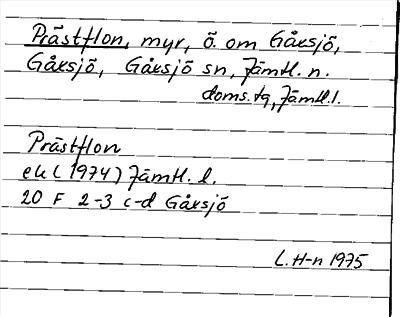 Prästflon, myr, ö. om Gåxsjö,
Gåxsjö, Gåxsjö sn, Jämtl. n.
doms. tg, Jämtl. l.
Prästflon
ek (1974) Jämtl. l.
20 F 2-3 c-d Gåxsjö
L. H-n 1975